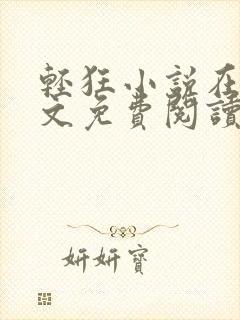 輕狂小說在
文免費閱讀
妍妍寶